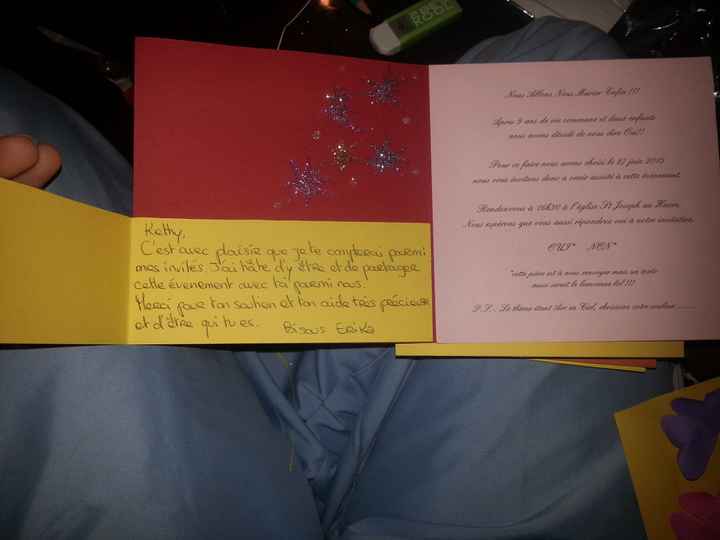 Ketty,
C'est avec plaisir que je te compterai parmi
mes invités. J'ai hâte d'y être et de partager
cette évenement avec toi parmi nous.
Merci pour ton soutien et ton aide très précieuse
et d'être qui tu es. Bisous Erika
Nous Allons Nous Marier Enfin !!!
Après 9 ans de vie commune et deux enfants
nous avons décidé de nous dire Oui!!
Pour ce faire nous avons choisi le 12 juin 2015
nous vous invitons donc a venir assisté à cette évènement.
Rendez-vous à 16h30 à l'église St Joseph au Havre.
Nous espérons que vous aussi répondrez oui à notre invitation.
OUI* NON*
*cette pièce est à nous renvoyer mais un texto
nous serait le bienvenu lol !!!
P.S : Le thème étant Arc en Ciel, choisissez votre couleur ..........